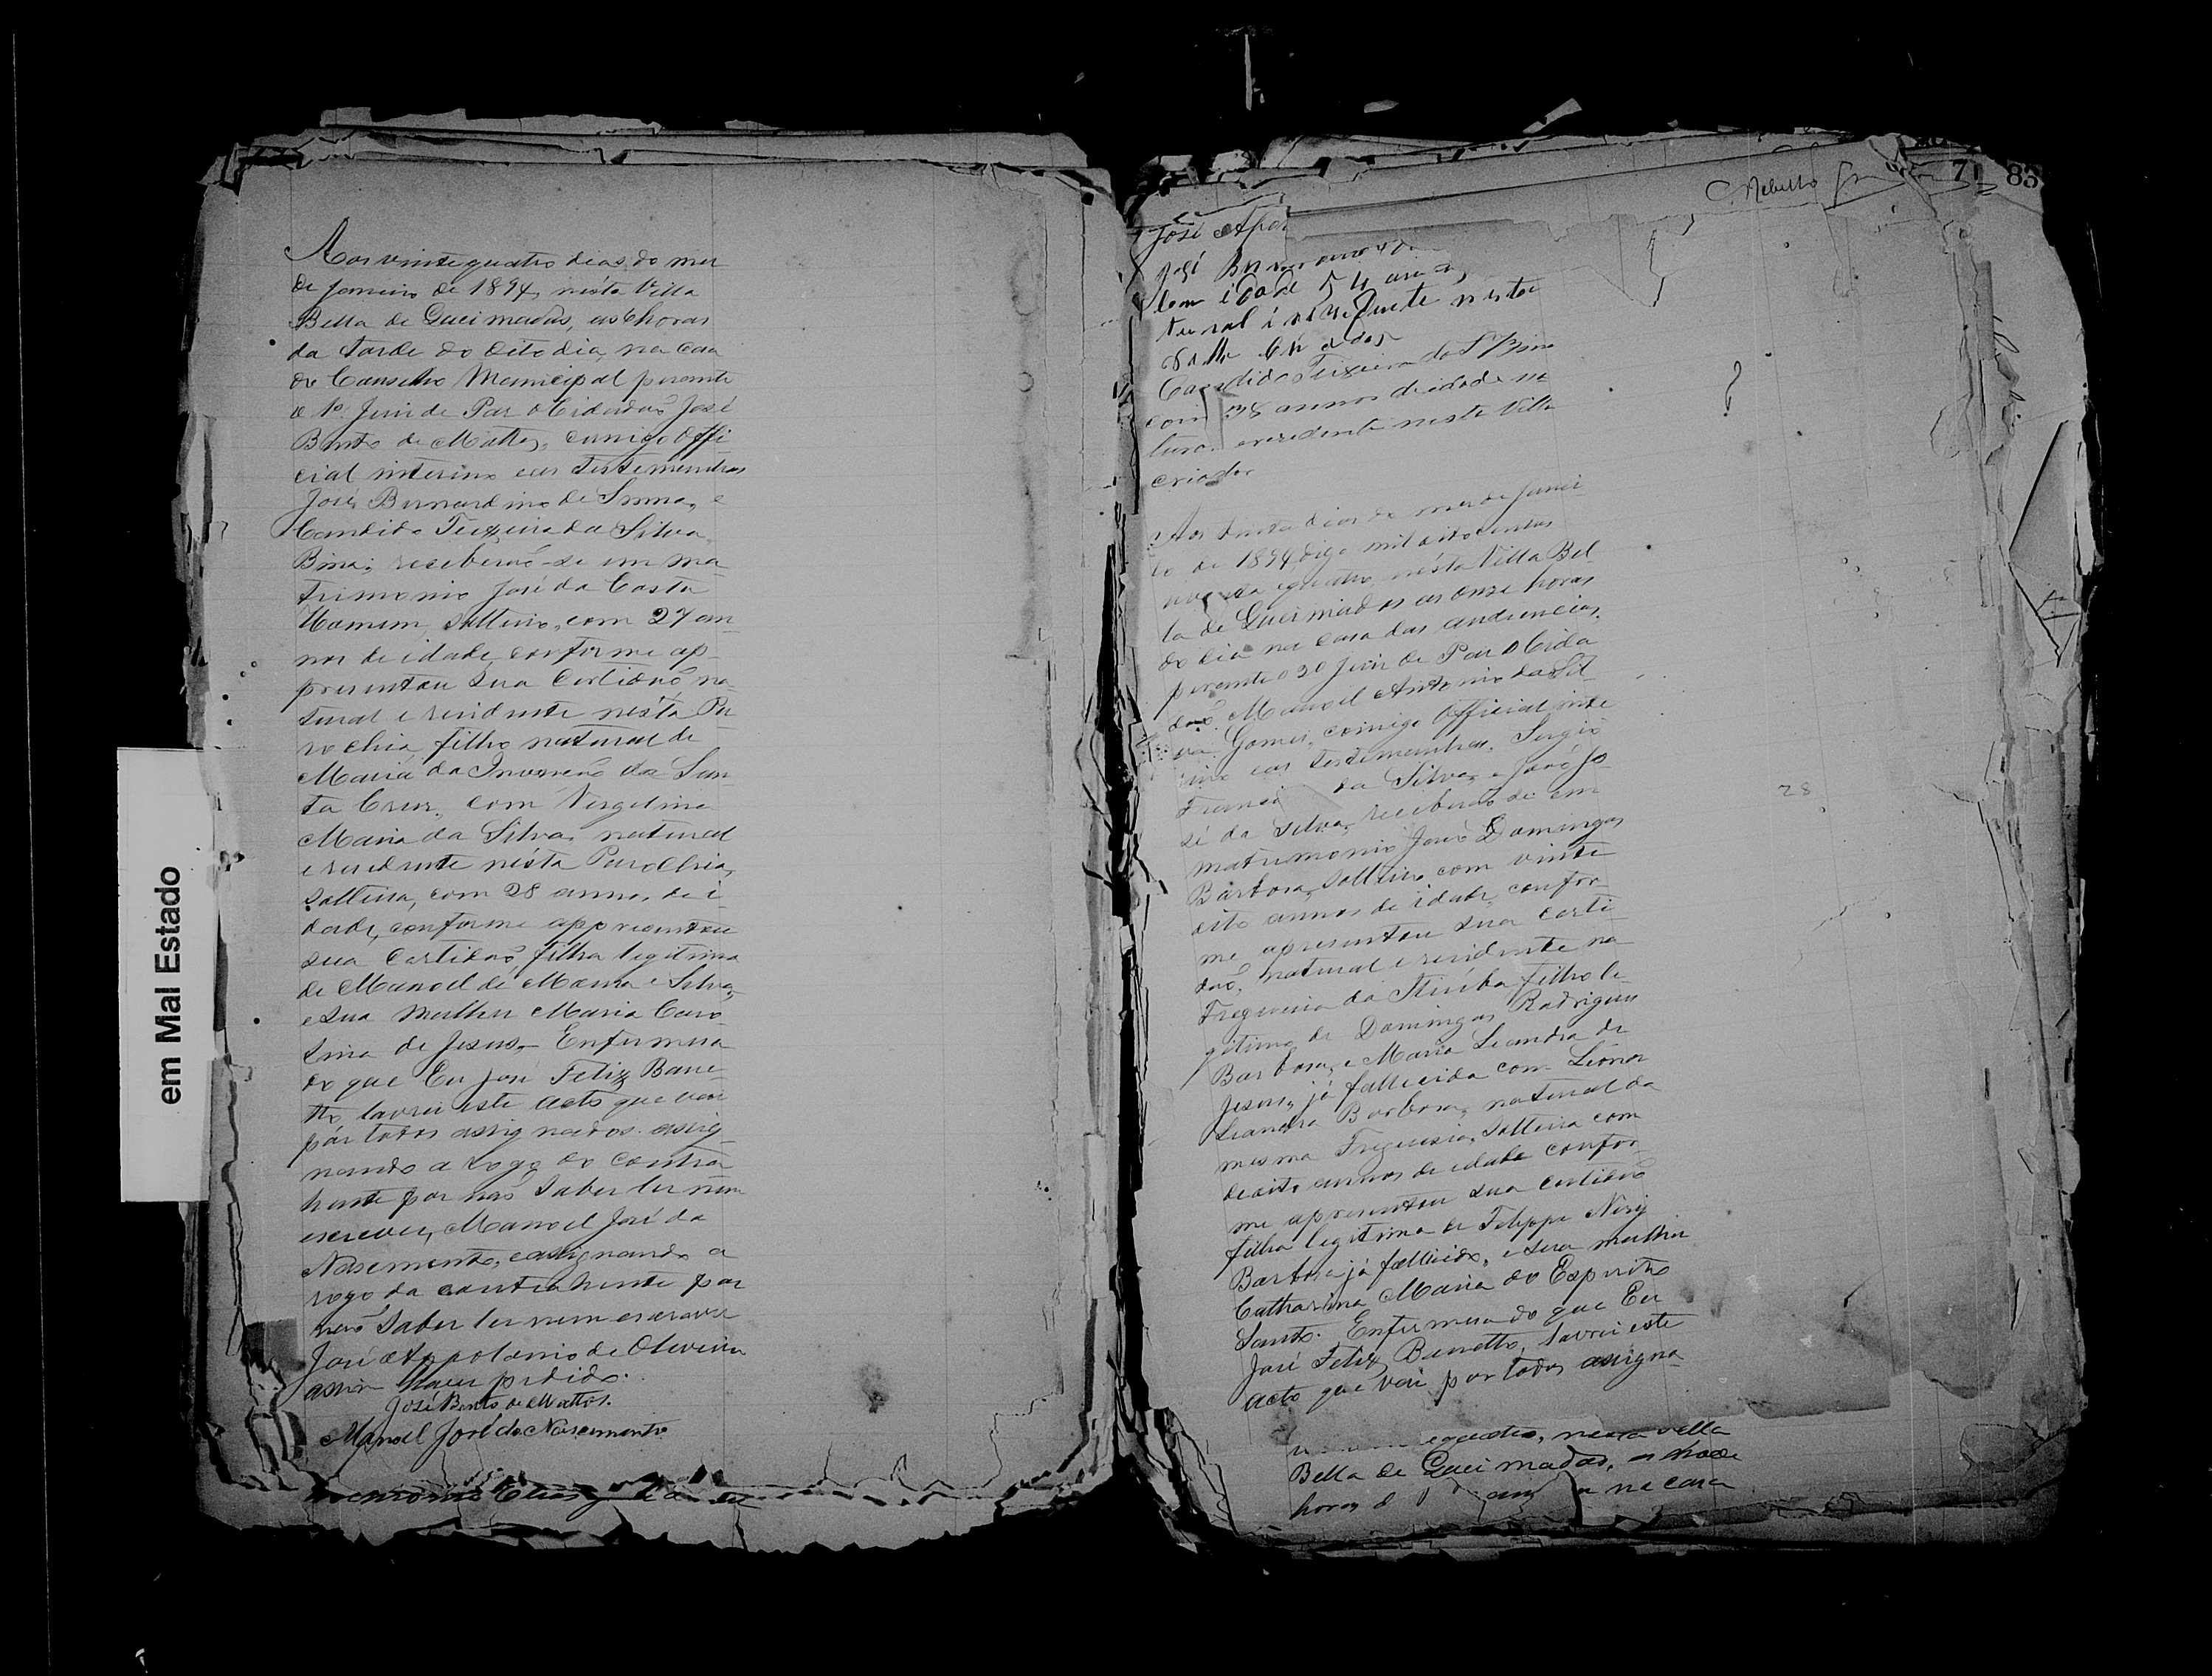 Aos vinte quatro dias do mez
de Janeiro de 1894, nesta Villa
Bella de Queimadas, as 6 horas
da tarde do dito dia, na casa
do Conselho Municipal perante
o 1º Juiz de Paz o Cidadaõ José
Bento de Mattos, comigo Offi-
cial interino e as testemunhas
José Bernardino de Senna, e
Candido Teixeira da Silva
Bina; receberaõ-se em ma-
trimonio José da Costa
Homem, solteiro, com 27 an-
nos de idade, conforme ap-
presentou sua Certidaõ, na-
tural e residente nesta Pa-
rochia, filho natural de
Maria da Invenção da San-
ta Cruz, com Vergelina
Maria da Silva, natural
e residente nésta Parochia,
solteira, com 28 annos de i-
dade, conforme appresentou
sua Certidaõ, filha legitima
de Manoel de Moura e Silva,
e sua mulher Maria Caro-
lina de Jesus. Enfirmesa
do que Eu José Feliz Barre-
tto, lavrei este acto que vai
por todos assignados. assig-
nando a rogo do contra-
hente por naõ saber ler nem
escrever, Manoel José do
Nascimento, e assignando a
rogo da contrahente por
naõ saber ler nem escrever
José Appolonio de Oliveira
assim haver pedido.
José Bento de Mattos.
Manoel José do Nascimento
71 83
José Apol
José Bernardino
com idade 54 annos,
tural i residente nesta
Villa Criador
Candido Teixeira da Sª Bina
com 38 annos de idade na
tural e residente nesta Villa
criador
Aos trinta dias do mez de Janei
ro de 1894, digo mil oito centos
noventa e quatro, nésta Villa Bel
la de Queimadas as onze horas
do dia na casa das audiencias,
perante o 2º Juiz de Paz o Cida
daõ Manoel Antonio da Sil
va Gomes, comigo Official inte
rino e as testemunhas, Sergio
Franci da Silva, e Joaõ Jo
sé da Silva, receberaõ se em
matrimonio José Domingos
28
Barbosa, solteiro com vinte
oito annos de idade, confor-
me apresentou sua certi
daõ, natural e residente na
Freguesia da Itiúba filho le-
gitimo de Domingos Rodrigues
Barbosa, e Maria Leandra de
Jesus, já fallecida com Leonor
Leandra Barbosa, natural da
mesma Freguesia, solteira com
desoito annos de idade confor-
me apresentou sua certidaõ
filha legitima de Felippe Nery
Barbosa já fallecido, e sua mulher
Catharina Maria do Espirito
Santo. Enfirmesa do que Eu
José Feliz Barretto, lavrei este
acto que vai por todos assigna-
e quatro, nesta villa
Bella de Queimadas, as
horas d na casa
em Mal Estado